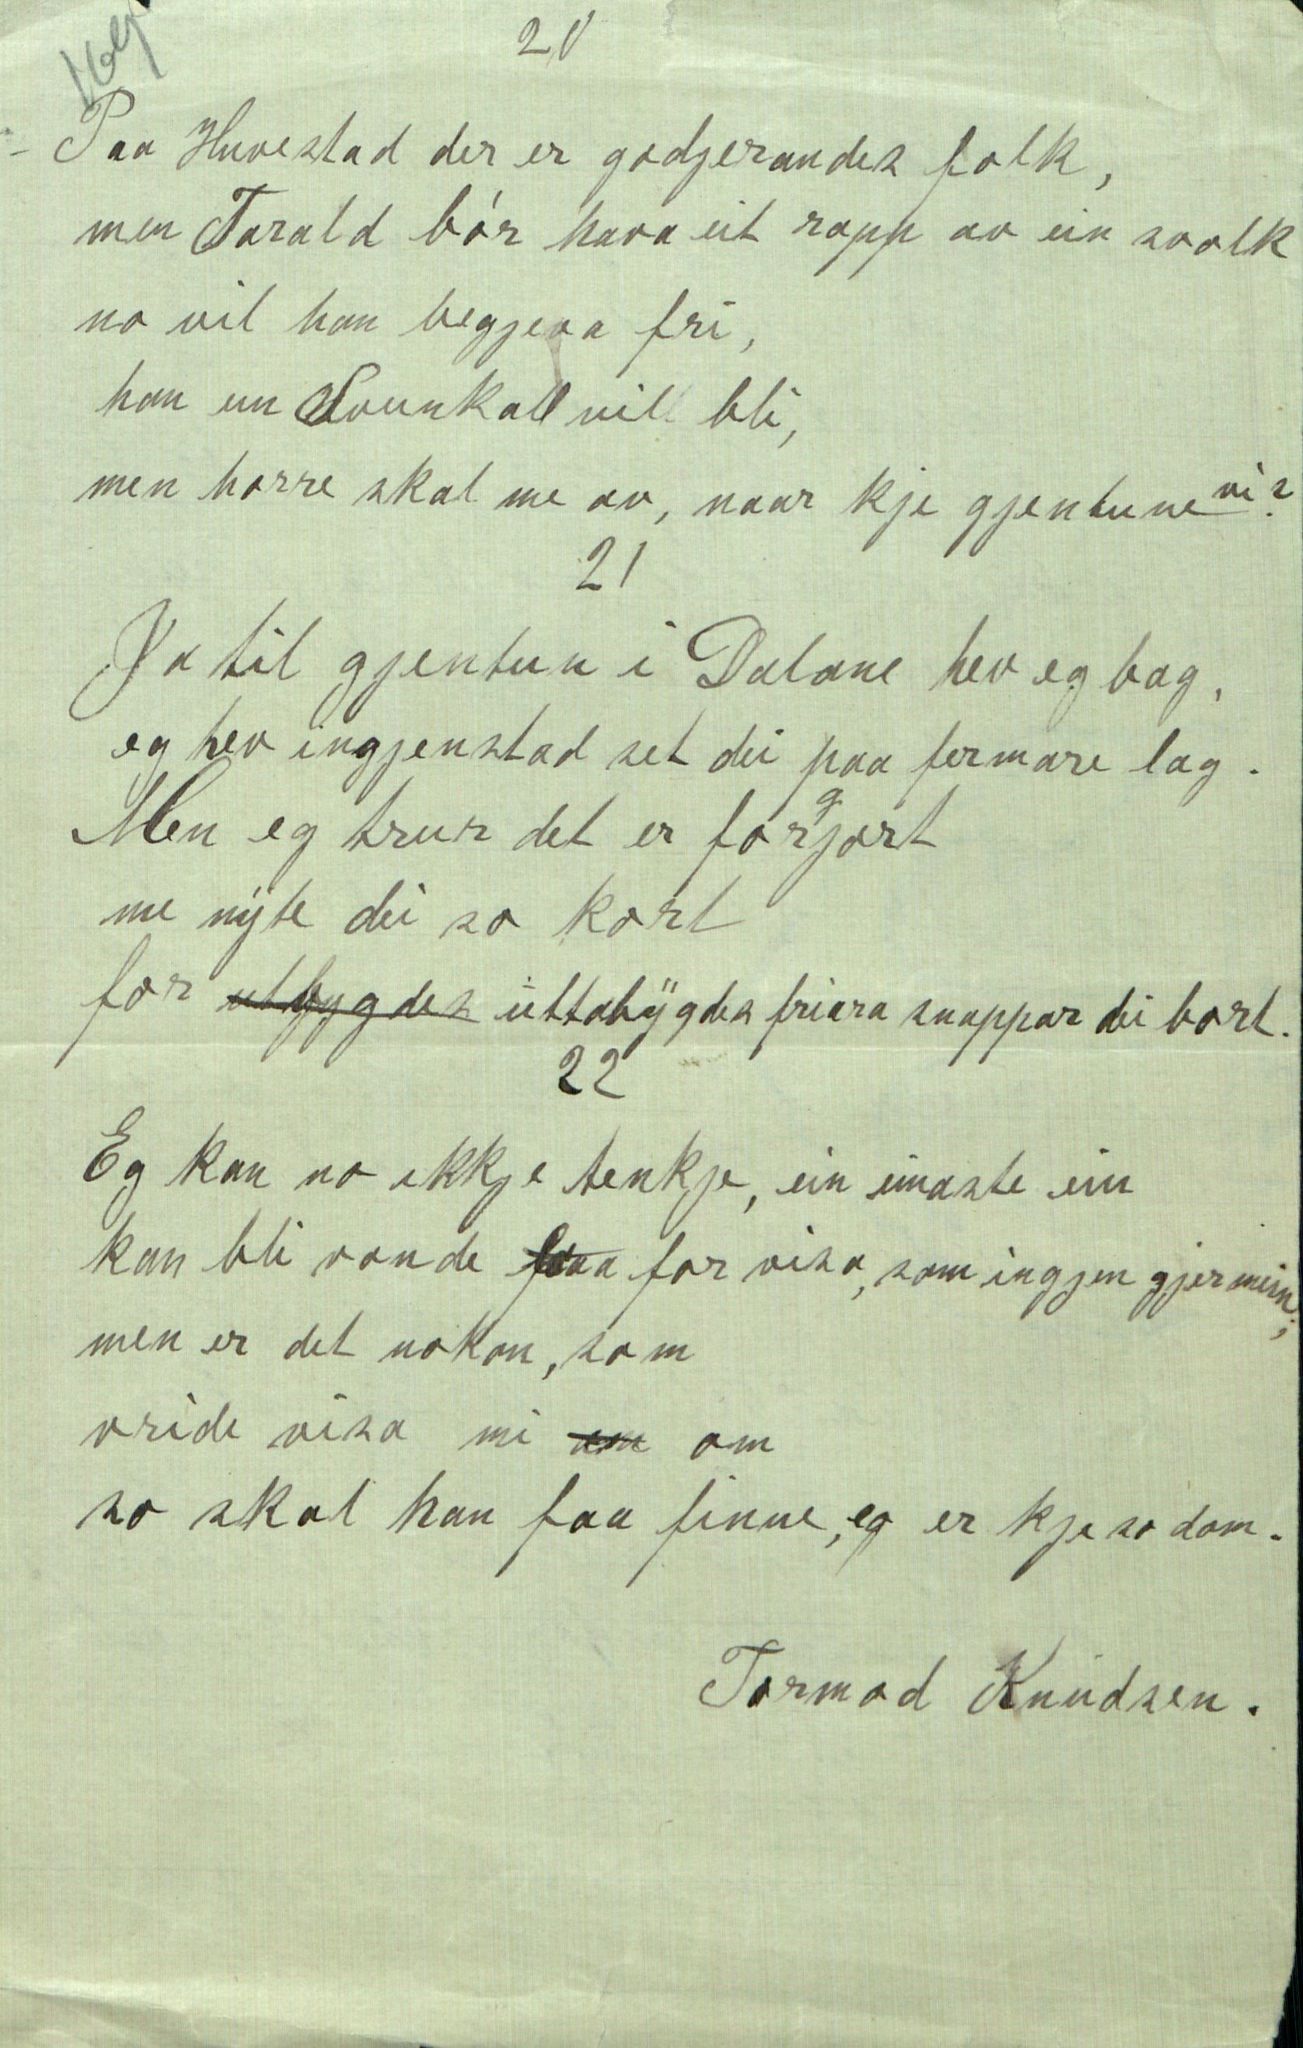 20
Paa Huvestad der er godgjerandes folk,
men Tarald bór hava eit rapp av ein svolk
no vil han begjeva fri,
han ein Svunkall vil bli,
men horre skal me av, naar kje gjentune vi?
21
Ja til gjentun i Dalane hev eg hag,
eg hev ingjenstad set dei paa fermare lag.
Men eg trur det er forgjort
me nyte dei so kort
for utbygdes uttabygdes friara snappar dei bort.
22
Eg kan no ikkje tenkje, ein einaste ein
kan bli vonde paa for visa, som ingjen gjer mein;
men er det nokon, som
vride visa mi um om
so skal han faa finne, eg er kje so dom.
Tormod Knudsen.